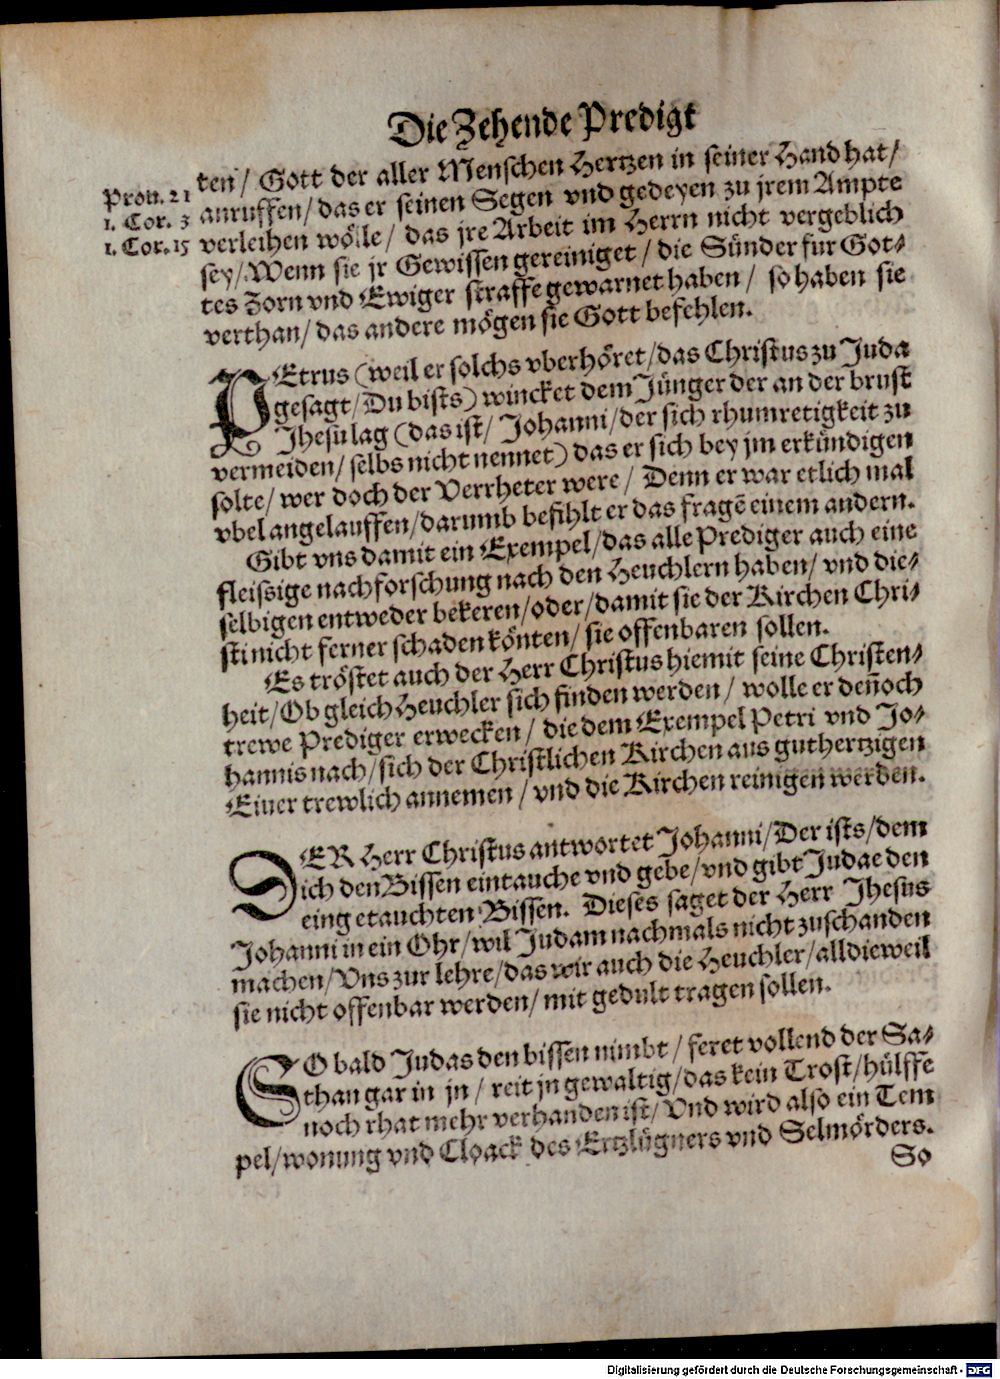 Die Zehende Predigt
ten/ Gott der aller Menschen Hertzen in seiner Hand hat/
Prou. 21
anruffen/ das er seinen Segen vnd gedeyen zu jrem Ampte
1. Cor. 3
verleihen wölle/ das jre Arbeit im Herrn nicht vergeblich
1. Cor. 15
sey/ Wenn sie jr Gewissen gereiniget/ die Sünder fur Got-
tes Zorn vnd Ewiger straffe gewarnet haben/ so haben sie
verthan/ das andere mögen sie Gott befehlen.
PEtrus (weil er solchs vberhöret/ das Christus zu Juda
gesagt/ Du bists) wincket dem Jünger der an der brust
Jhesu lag (das ist/ Johanni/ der sich rhumretigkeit zu
vermeiden/ selbs nicht nennet) das er sich bey jm erkündigen
solte/ wer doch der Verrheter were/ Denn er war etlich mal
vbel angelauffen/ darumb befihlt er das fragē einem andern.
Gibt vns damit ein Exempel/ das alle Prediger auch eine
fleissige nachforschung nach den Heuchlern haben/ vnd die-
selbigen entweder bekeren/ oder/ damit sie der Kirchen Chri-
sti nicht ferner schaden könten/ sie offenbaren sollen.
Es tröstet auch der Herr Christus hiemit seine Christen-
heit/ Ob gleich Heuchler sich finden werden/ wolle er deñoch
trewe Prediger erwecken/ die dem Exempel Petri vnd Jo-
hannis nach/ sich der Christlichen Kirchen aus guthertzigen
Eiuer trewlich annemen/ vnd die Kirchen reinigen werden.
DER Herr Christus antwortet Johanni/ Der ists/ dem
ich den Bissen eintauche vnd gebe/ vnd gibt Judae den
eingetauchten Bissen. Dieses saget der Herr Jhesus
Johanni in ein Ohr/ wil Judam nachmals nicht zuschanden
machen/ Vns zur lehre/ das wir auch die Heuchler/ alldieweil
sie nicht offenbar werden/ mit gedult tragen sollen.
SO bald Judas den bissen nimbt/ feret vollend der Sa-
than gar in jn/ reit jn gewaltig/ das kein Trost/ hülffe
noch rhat mehr verhanden ist/ Vnd wird also ein Tem
pel/ wonung vnd Cloack des Ertzlügners vnd Selmörders.
So
Digitalisierung gefördert durch die Deutsche Forschungsgemeinschaft - DFG